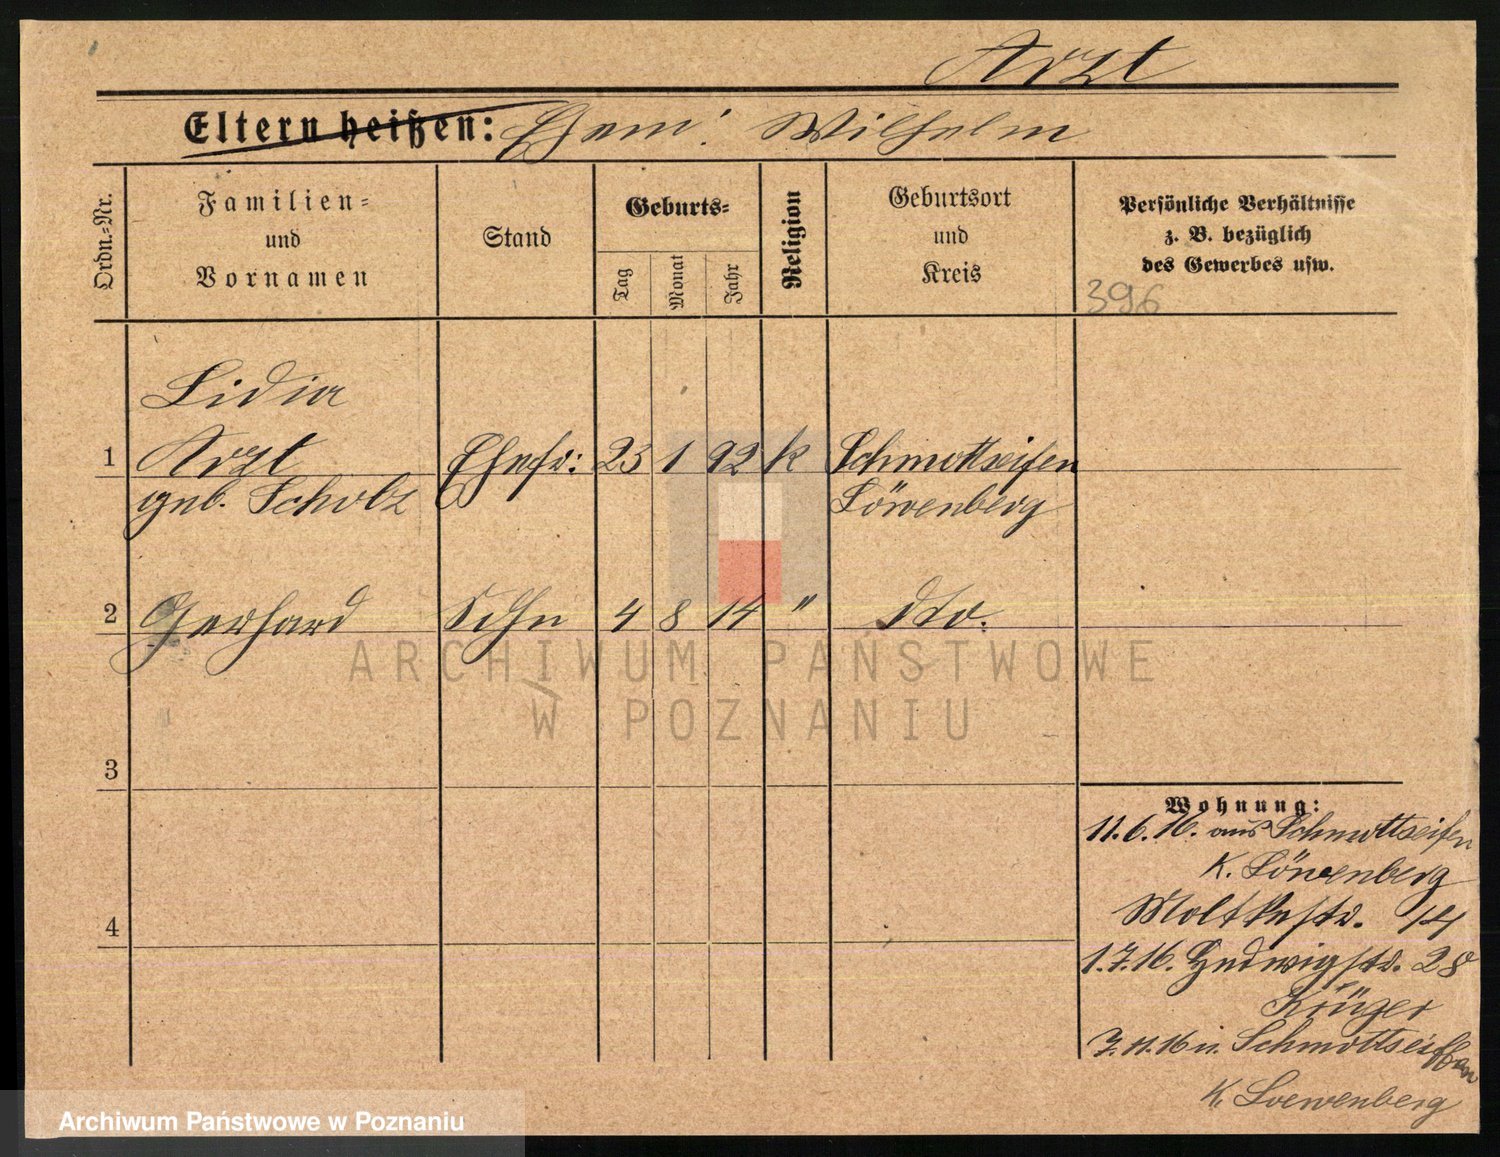 Arzt
Eltern heißen: Ehem: Wilhelm
Ordn.-Nr.
Familien-
und
Vornamen
Stand
Geburts-
Tag
Monat
Jahr
Religion
Geburtsort
und
Kreis
Persönliche Verhältnisse
z. B. bezüglich
des Gewerbes usw.
396
Lidia
1 Arzt Ehefr: 23 1 92 k Schmottseifen
geb. Scholz Löwenberg
2 Gerhard Sohn 4 8 14 " dto.
ARCHIWUM PAŃSTWOWE
W POZNANIU
3
4
Wohnung:
11.6.16. aus Schmottseifen
K. Löwenberg
Moltkestr. 14
1.7.16. Hedwigstr. 28
Krüger
7.11.16 n. Schmottseiffen
K. Loewenberg
Archiwum Państwowe w Poznaniu